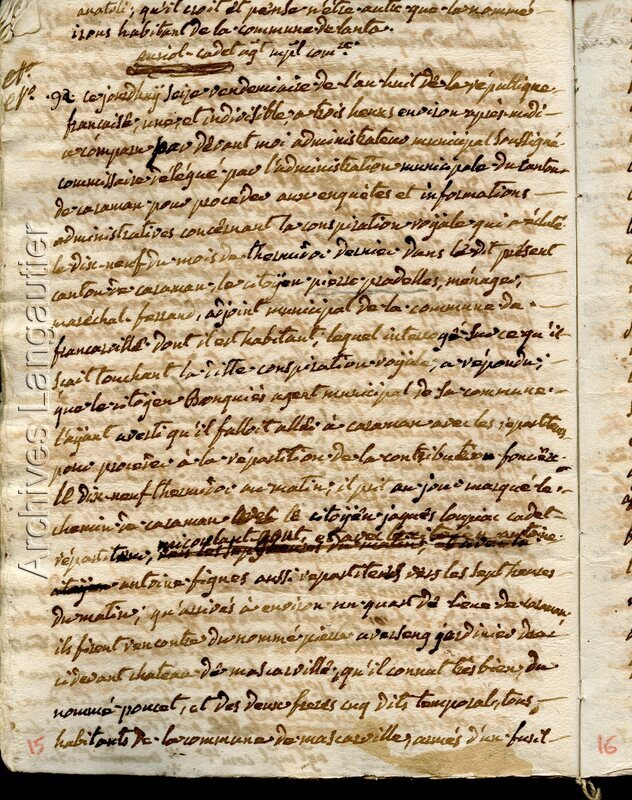 anatoli; qu'il croit et pense n'être autre que le nommé
irons habitant de la commune de lanta.
auriol cadet agt mpl comre
92 ce jourdhuy seize vendemiaire de l'an huit de la république
francaise, une, et indivisible, a trois heures environ après midi
a comparu par devant moi administrateur municipal soussigné
commissaire délégué par l'administration municipale du canton
de caraman pour proceder aux enquêtes et informations
administratives concernant la conspiration royale qui a éclaté
le dix-neuf du mois de thermidor dernier dans le dit présent
canton de caraman, le citoyen pierre pradelles, ménager,
maréchal ferrand, adjoint municipal de la commune de
francarville dont il est habitant, lequel interrogé sur ce qu'il
sçait touchant la ditte conspiration royale, a répondu;
que le citoyen Bonquiés agent municipal de sa commune
l'ayant averti qu'il falloit aller à caraman avec les repartiteurs
pour proceder à la repartition de la contribution fonciere
le dix-neuf thermidor au matin; il prit au jour marqué le
chemin de caraman le citoyen jaques loupiac cadet
répartiteur,
antoine fignes aussi repartiteurs vers les sept heures
du matin; qu'arrivés à environ un quart de lieue de caraman
ils firent rencontre du nommé pierre averseng jardinier de
ci devant chateau de mascarville, qu'il connut très bien, du
nommé poncet, et des deux freres cuq dits temporal, tous
habitants de la commune de mascarville, armés d'un fusil
15
16
Archives Langautier